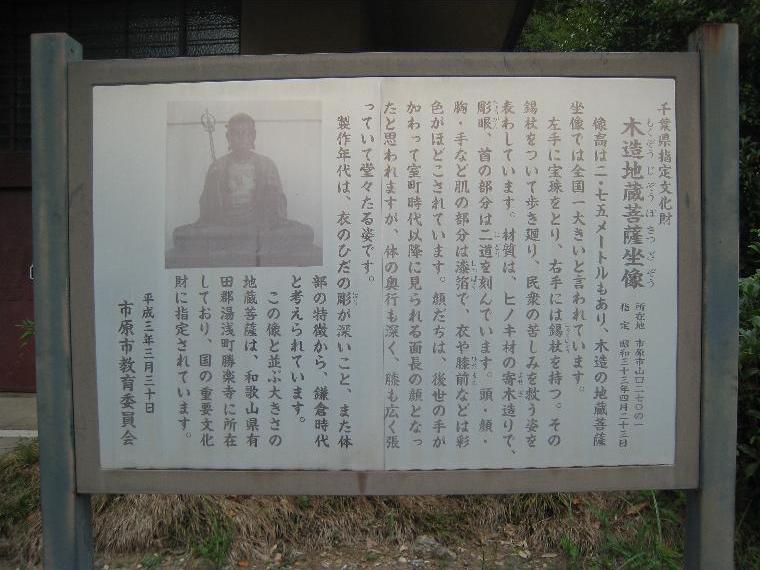 千葉県指定文化財
木造地蔵菩薩坐像
もくぞうじぞうぼさつざぞう
所在地 市原市山口二七〇の一
指定 昭和三十三年四月二十三日
像高は二・七五メートルもあり、木造の地蔵菩薩
坐像では全国一大きいと言われています。
左手に宝珠をとり、右手には錫杖を持つ。その
錫杖をついて歩き廻り、民衆の苦しみを救う姿を
表わしています。材質は、ヒノキ材の寄木造りで、
彫眼、首の部分は二道を刻んでいます。頭・顔・
胸・手など肌の部分は漆箔で、衣や膝前などは彩
色がほどこされています。顔だちは、後世の手が
加わって室町時代以降に見られる面長の顔となっ
たと思われますが、体の奥行も深く、膝も広く張
っていて堂々たる姿です。
製作年代は、衣のひだの彫が深いこと、また体
部の特徴から、鎌倉時代
と考えられています。
この像と並ぶ大きさの
地蔵菩薩は、和歌山県有
田郡湯浅町勝楽寺に所在
しており、国の重要文化
財に指定されています。
平成三年三月三十日
市原市教育委員会